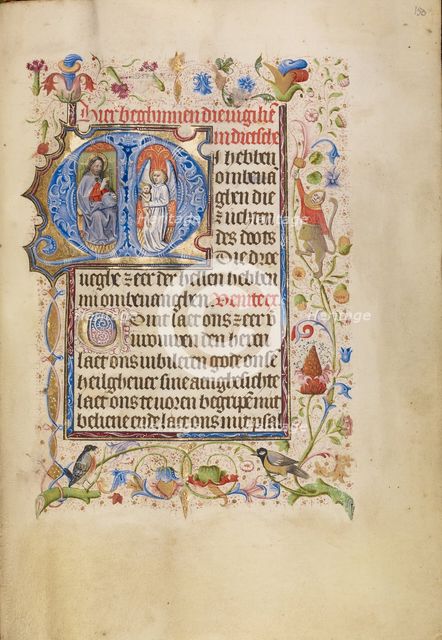 150
Hier beghinnen die vigilien
in duetsche
hebben
ombeua
ghen die
zuchten
des doots
Die droe
ueghe zeer der hellen hebben
mi ombeuaenghen Venite er
Comt laet ons zeer v
urouwen den heren
laet ons iubileren gode onse
heilgheuer sine aengesichte
laet ons te voren begripen mit
beliene ende laet ons mit psal